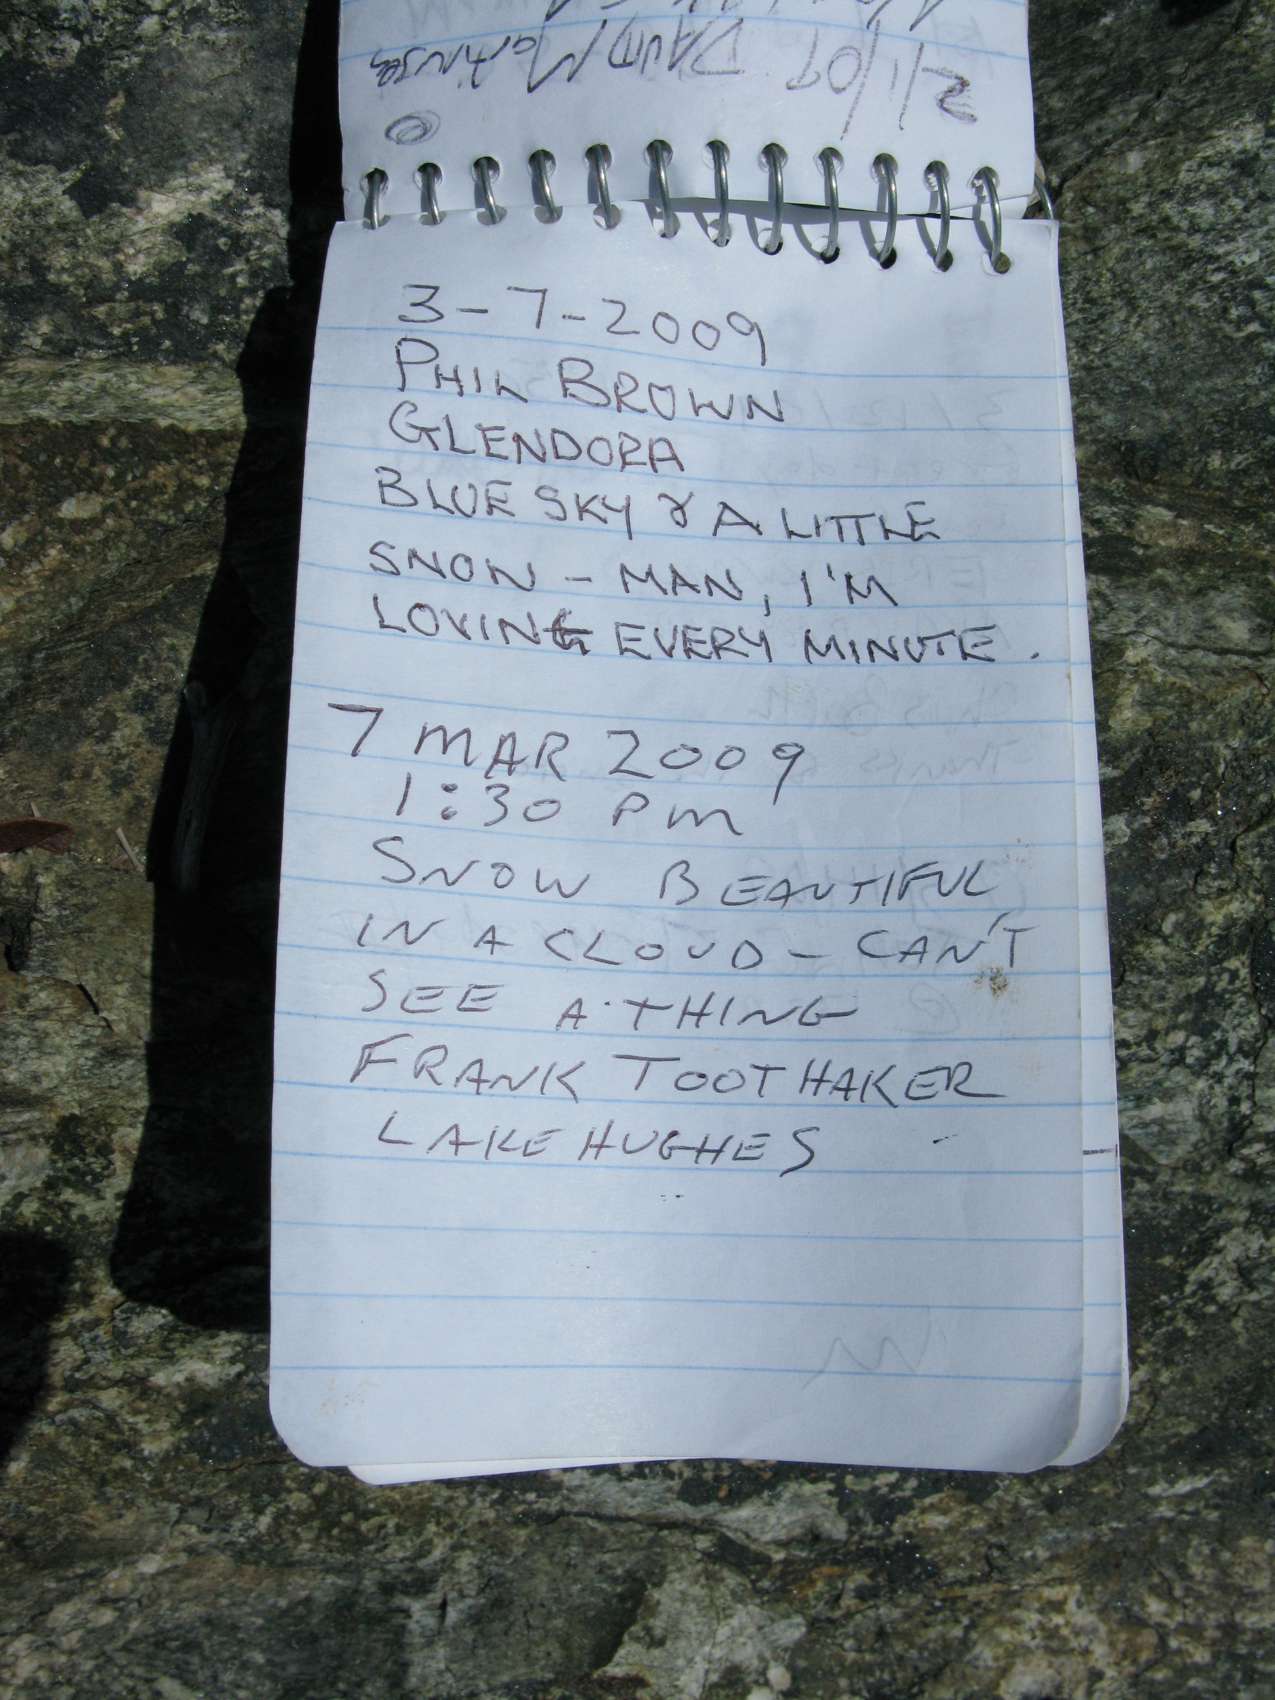 2/1/09 DAVID Martinez
3-7-2009
PHIL BROWN
GLENDORA
BLUE SKY & A LITTLE
SNOW - MAN, I'M
LOVING EVERY MINUTE.
7 MAR 2009
1:30 PM
SNOW BEAUTIFUL
IN A CLOUD - CAN'T
SEE A THING
FRANK TOOTHAKER
LAKE HUGHES